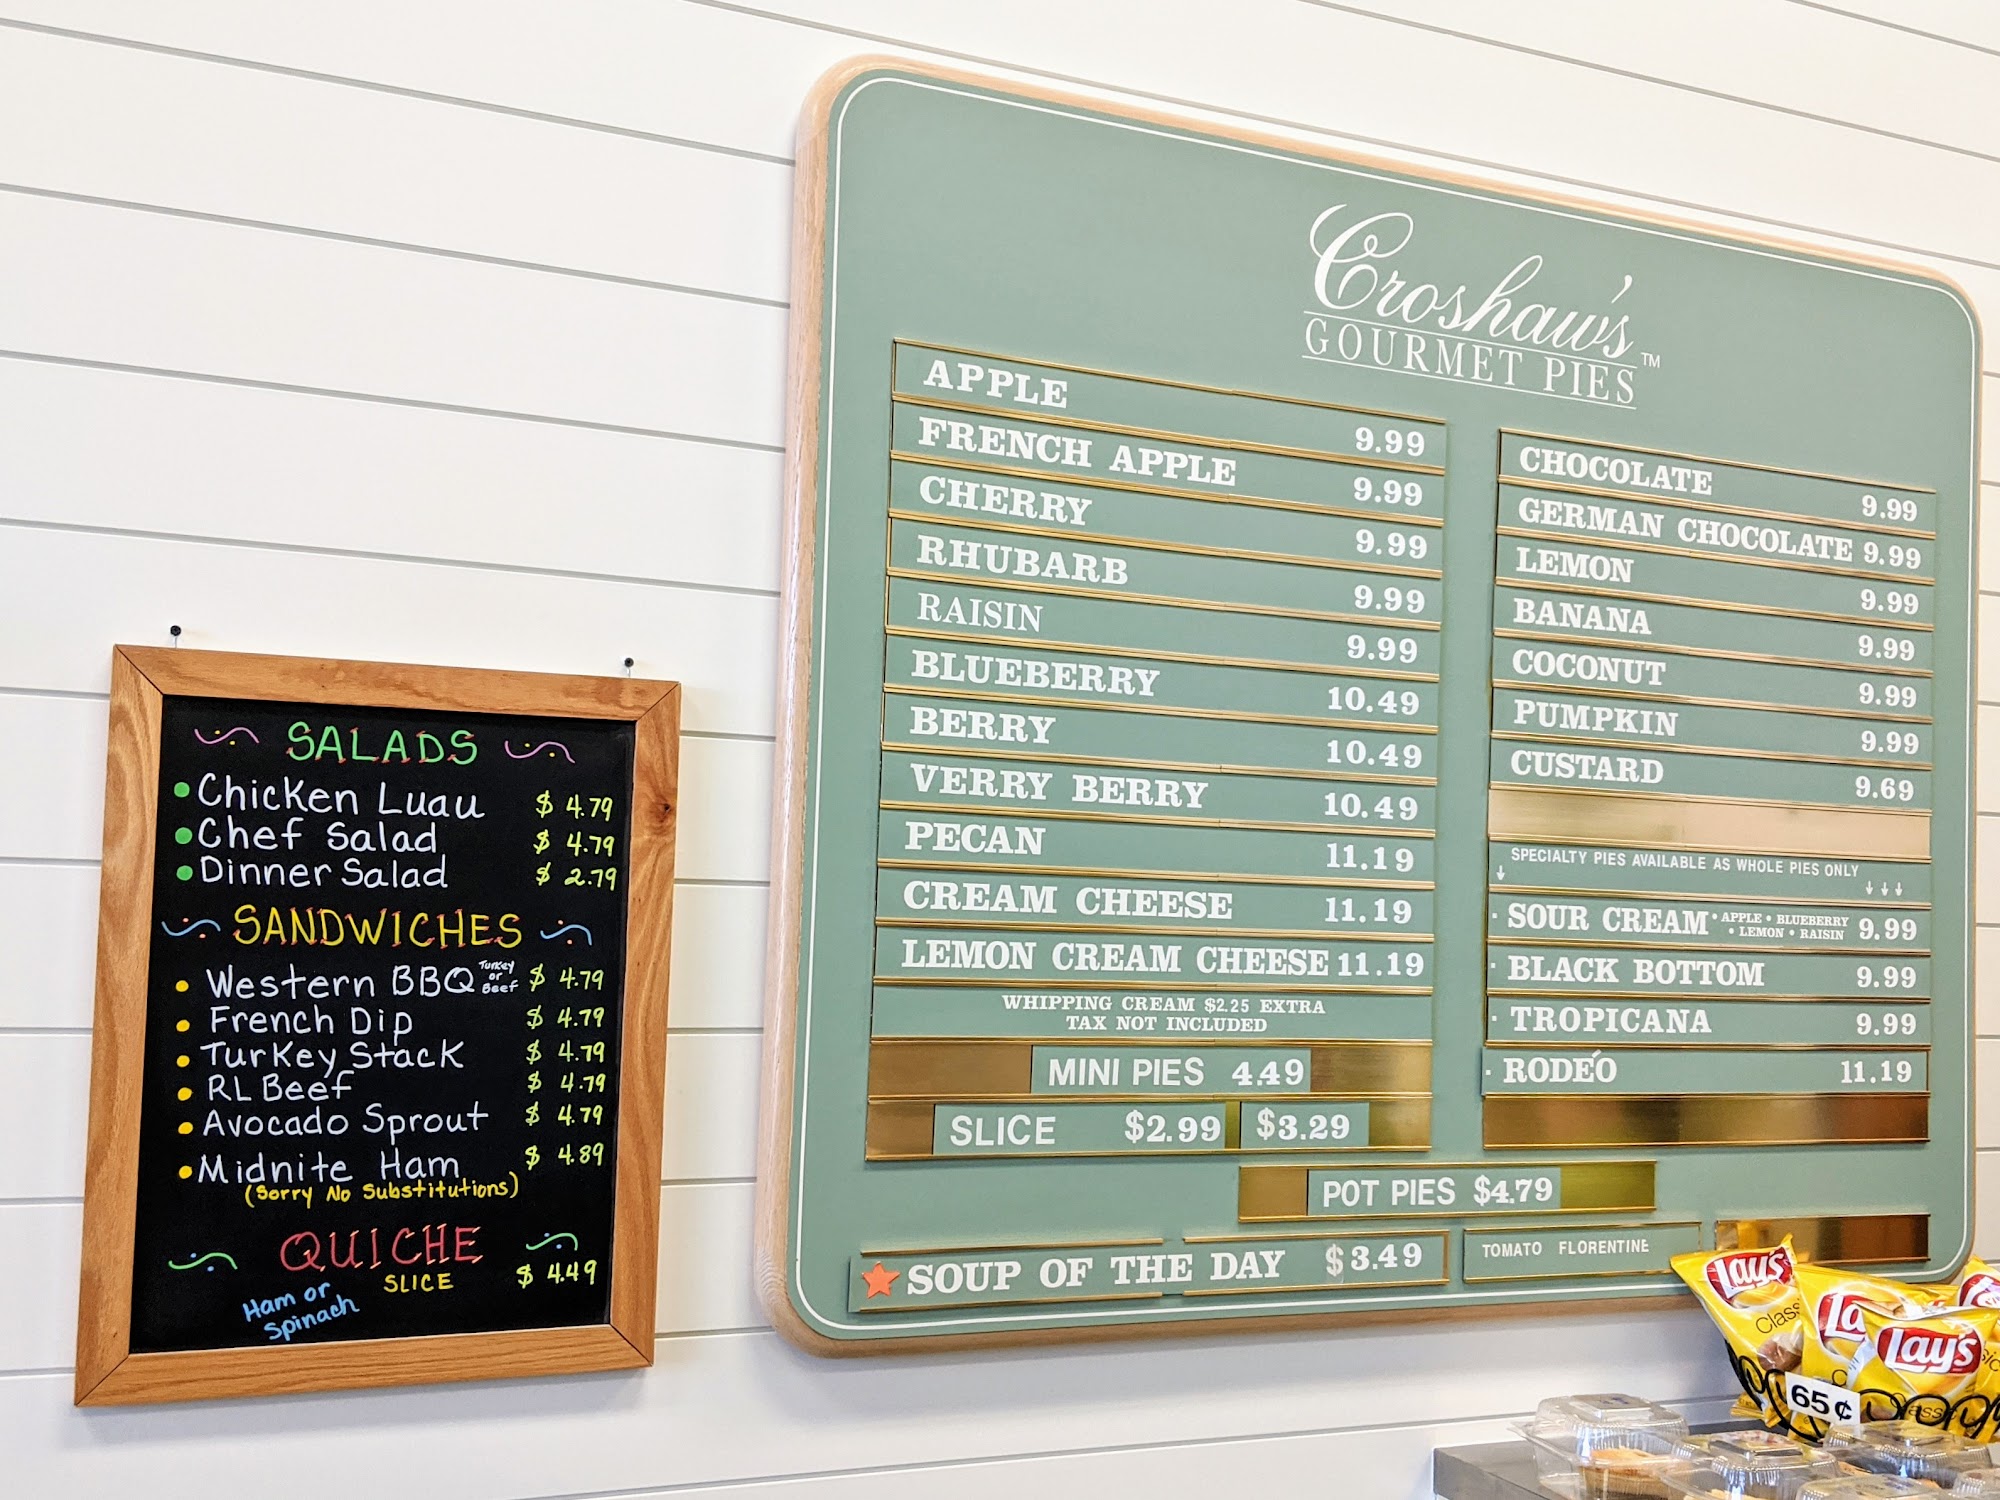 SALADS
Chicken Luau $ 4.79
Chef Salad $ 4.79
Dinner Salad $ 2.79
SANDWICHES
Western BBQ Turkey or Beef $ 4.79
French Dip $ 4.79
Turkey Stack $ 4.79
RL Beef $ 4.79
Avocado Sprout $ 4.79
Midnite Ham $ 4.89
(Sorry No Substitutions)
QUICHE
SLICE $ 4.49
Ham or
Spinach
Croshaw's
GOURMET PIES™
APPLE 9.99
FRENCH APPLE 9.99
CHERRY 9.99
RHUBARB 9.99
RAISIN 9.99
BLUEBERRY 10.49
BERRY 10.49
VERRY BERRY 10.49
PECAN 11.19
CREAM CHEESE 11.19
LEMON CREAM CHEESE 11.19
WHIPPING CREAM $2.25 EXTRA
TAX NOT INCLUDED
MINI PIES 4.49
SLICE $2.99 $3.29
CHOCOLATE 9.99
GERMAN CHOCOLATE 9.99
LEMON 9.99
BANANA 9.99
COCONUT 9.99
PUMPKIN 9.99
CUSTARD 9.69
SPECIALTY PIES AVAILABLE AS WHOLE PIES ONLY
↓ ↓↓↓
· SOUR CREAM • APPLE • BLUEBERRY • LEMON • RAISIN 9.99
· BLACK BOTTOM 9.99
· TROPICANA 9.99
· RODEÓ 11.19
POT PIES $4.79
SOUP OF THE DAY $3.49 TOMATO FLORENTINE
Lay's
Classic
La
Lay's
Classic
65¢